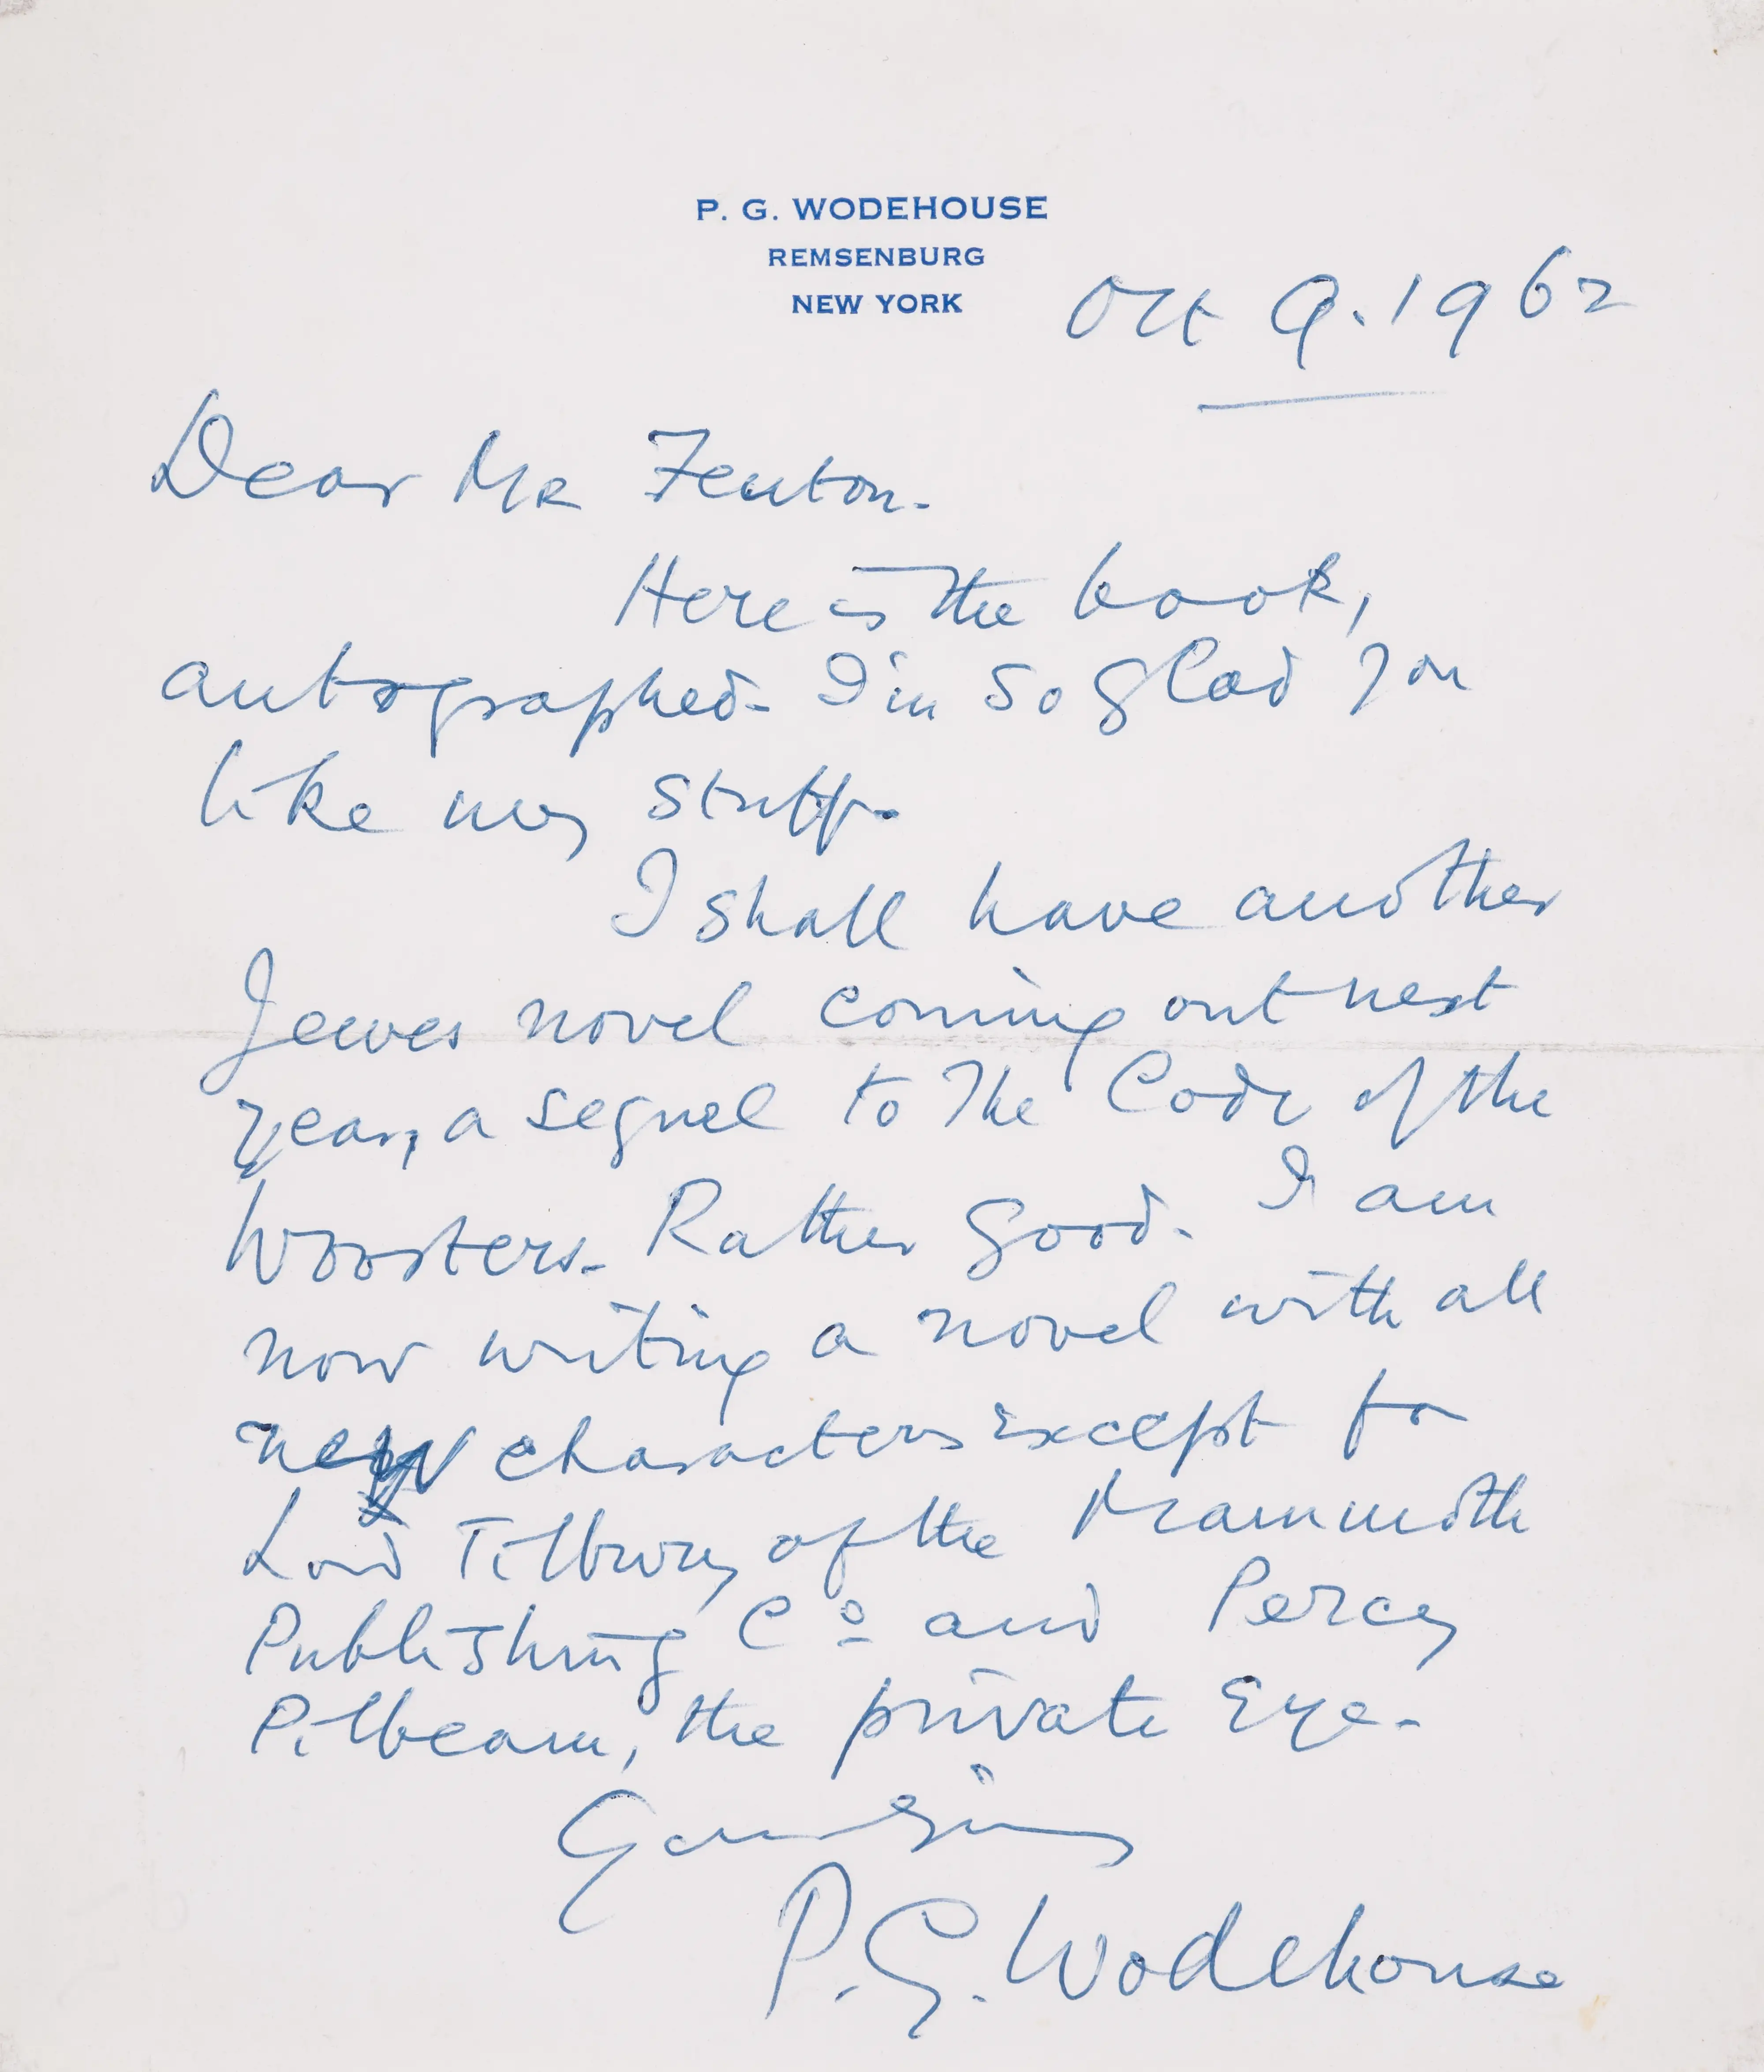 P. G. WODEHOUSE
REMSENBURG
NEW YORK
Oct 9. 1962
Dear Mr Fenton.
Here is the book,
autographed. I'm so glad you
like my stuff.
I shall have another
Jeeves novel coming out next
year, a sequel to The Code of the
Woosters. Rather good. I am
now writing a novel with all
new characters except for
Lord Tilbury of the Mammoth
Publishing Co and Percy
Pilbeam, the private eye.
Yours sincerely
P. G. Wodehouse